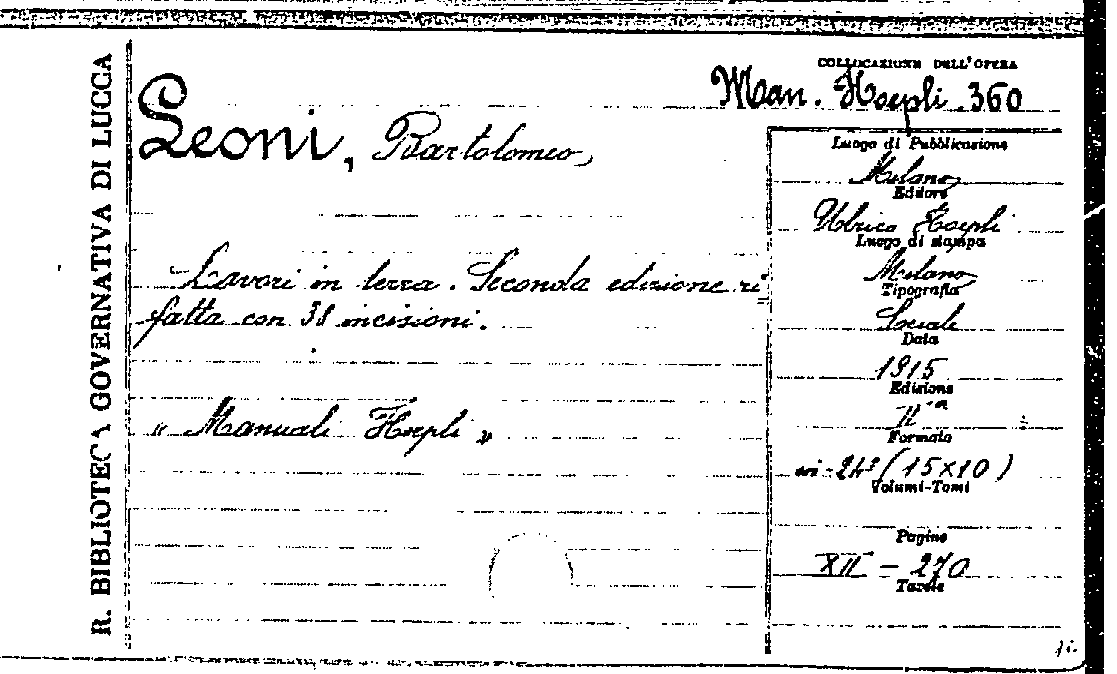 R. BIBLIOTECA GOVERNATIVA DI LUCCA
COLLOCAZIONE DELL'OPERA
Man. Hoepli 360
Leoni, Bartolomeo
Lavori in terra. Seconda edizione ri=
fatta con 38 incisioni.
« Manuali Hoepli »
Luogo di Pubblicazione
Milano
Editore
Ulrico Hoepli
Luogo di stampa
Milano
Tipografia
Sociale
Data
1915
Edizione
IIª
Formato
in-24° (15x10)
Volumi-Tomi
Pagine
XII - 270
Tavole